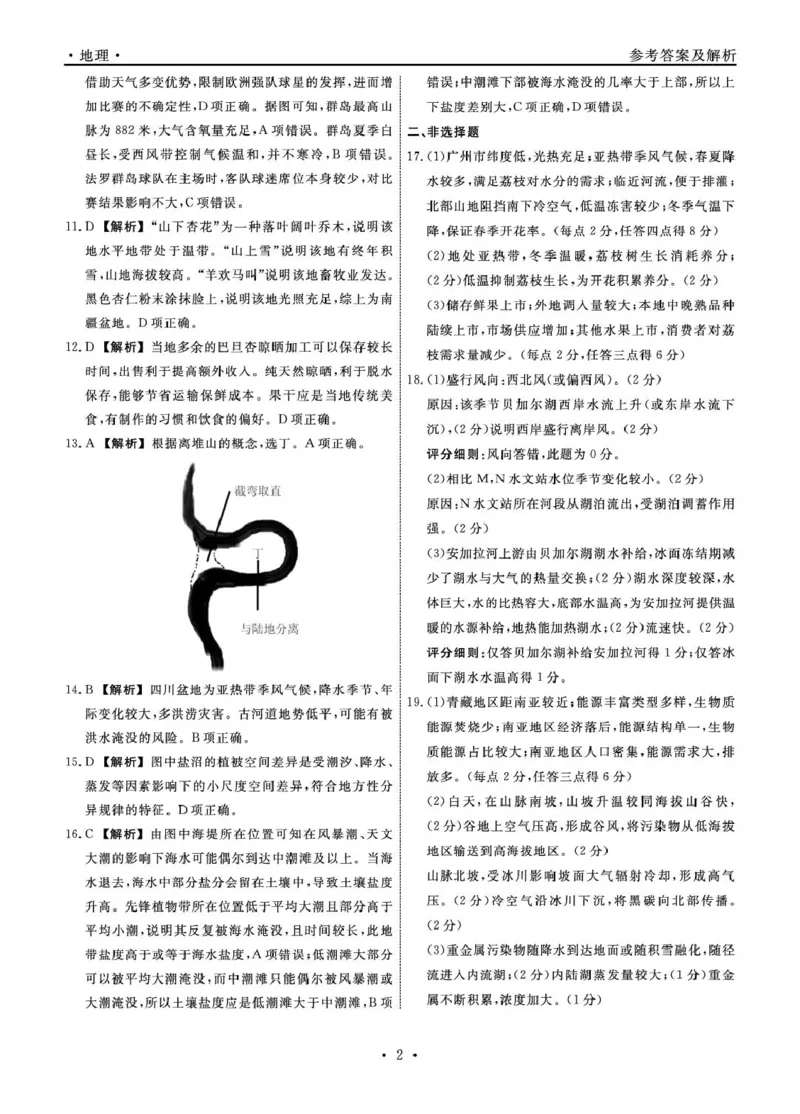 ·地理·
参考答案及解析
借助天气多变优势,限制欧洲强队球星的发挥,进而增
加比赛的不确定性,D项正确。据图可知,群岛最高山
脉为 882 米,大气含氧量充足,A项错误。群岛夏季白
昼长,受西风带控制气候温和,并不寒冷,B项错误。
法罗群岛球队在主场时,客队球迷席位本身较少,对比
赛结果影响不大,C项错误。
11. D 【解析】“山下杏花”为一种落叶阔叶乔木,说明该
地水平地带处于温带。“山上雪”说明该地有终年积
雪,山地海拔较高。“羊欢马叫”说明该地畜牧业发达。
黑色杏仁粉末涂抹脸上,说明该地光照充足,综上为南
疆盆地。D项正确。
12. D 【解析】当地多余的巴旦杏晾晒加工可以保存较长
时间,出售利于提高额外收入。纯天然晾晒,利于脱水
保存,能够节省运输保鲜成本。果干应是当地传统美
食,有制作的习惯和饮食的偏好。D项正确。
13. A 【解析】根据离堆山的概念,选丁。A项正确。
截弯取直
丁
与陆地分离
14. B 【解析】四川盆地为亚热带季风气候,降水季节、年
际变化较大,多洪涝灾害。古河道地势低平,可能有被
洪水淹没的风险。B项正确。
15. D 【解析】图中盐沼的植被空间差异是受潮汐、降水、
蒸发等因素影响下的小尺度空间差异,符合地方性分
异规律的特征。D项正确。
16. C 【解析】由图中海堤所在位置可知在风暴潮、天文
大潮的影响下海水可能偶尔到达中潮滩及以上。当海
水退去,海水中部分盐分会留在土壤中,导致土壤盐度
升高。先锋植物带所在位置低于平均大潮且部分高于
平均小潮,说明其反复被海水淹没,且时间较长,此地
带盐度高于或等于海水盐度,A项错误;低潮滩大部分
可以被平均大潮淹没,而中潮滩只能偶尔被风暴潮或
大潮淹没,所以土壤盐度应是低潮滩大于中潮滩,B项
错误;中潮滩下部被海水淹没的几率大于上部,所以上
下盐度差别大,C项正确,D项错误。
二、非选择题
17. (1)广州市纬度低,光热充足;亚热带季风气候,春夏降
水较多,满足荔枝对水分的需求;临近河流,便于排灌;
北部山地阻挡南下冷空气,低温冻害较少;冬季气温下
降,保证春季开花率。(每点 2 分,任答四点得 8 分)
(2)地处亚热带,冬季温暖,荔枝树生长消耗养分;
(2 分)低温抑制荔枝生长,为开花积累养分。(2 分)
(3)储存鲜果上市;外地调入量较大;本地中晚熟品种
陆续上市,市场供应增加;其他水果上市,消费者对荔
枝需求量减少。(每点 2 分,任答三点得 6 分)
18. (1)盛行风向:西北风(或偏西风)。(2 分)
原因:该季节贝加尔湖西岸水流上升(或东岸水流下
沉),(2 分)说明西岸盛行离岸风。(2 分)
评分细则:风向答错,此题为 0 分。
(2)相比 M,N 水文站水位季节变化较小。(2 分)
原因:N 水文站所在河段从湖泊流出,受湖泊调蓄作用
强。(2 分)
(3)安加拉河上游由贝加尔湖湖水补给,冰面冻结期减
少了湖水与大气的热量交换;(2 分)湖水深度较深,水
体巨大,水的比热容大,底部水温高,为安加拉河提供温
暖的水源补给,地热能加热湖水;(2 分)流速快。(2 分)
评分细则:仅答贝加尔湖补给安加拉河得 1 分;仅答冰
面下湖水水温高得 1 分。
19. (1)青藏地区距南亚较近;能源丰富类型多样,生物质
能源焚烧少;南亚地区经济落后,能源结构单一,生物
质能源占比较大;南亚地区人口密集,能源需求大,排
放多。(每点 2 分,任答三点得 6 分)
(2)白天,在山脉南坡,山坡升温较同海拔山谷快,
(2 分)谷地上空气压高,形成谷风,将污染物从低海拔
地区输送到高海拔地区。(2 分)
山脉北坡,受冰川影响坡面大气辐射冷却,形成高气
压。(2 分)冷空气沿冰川下沉,将黑碳向北部传播。
(2 分)
(3)重金属污染物随降水到达地面或随积雪融化,随径
流进入内流湖;(2 分)内陆湖蒸发量较大;(1 分)重金
属不断积累,浓度加大。(1 分)
· 2 ·